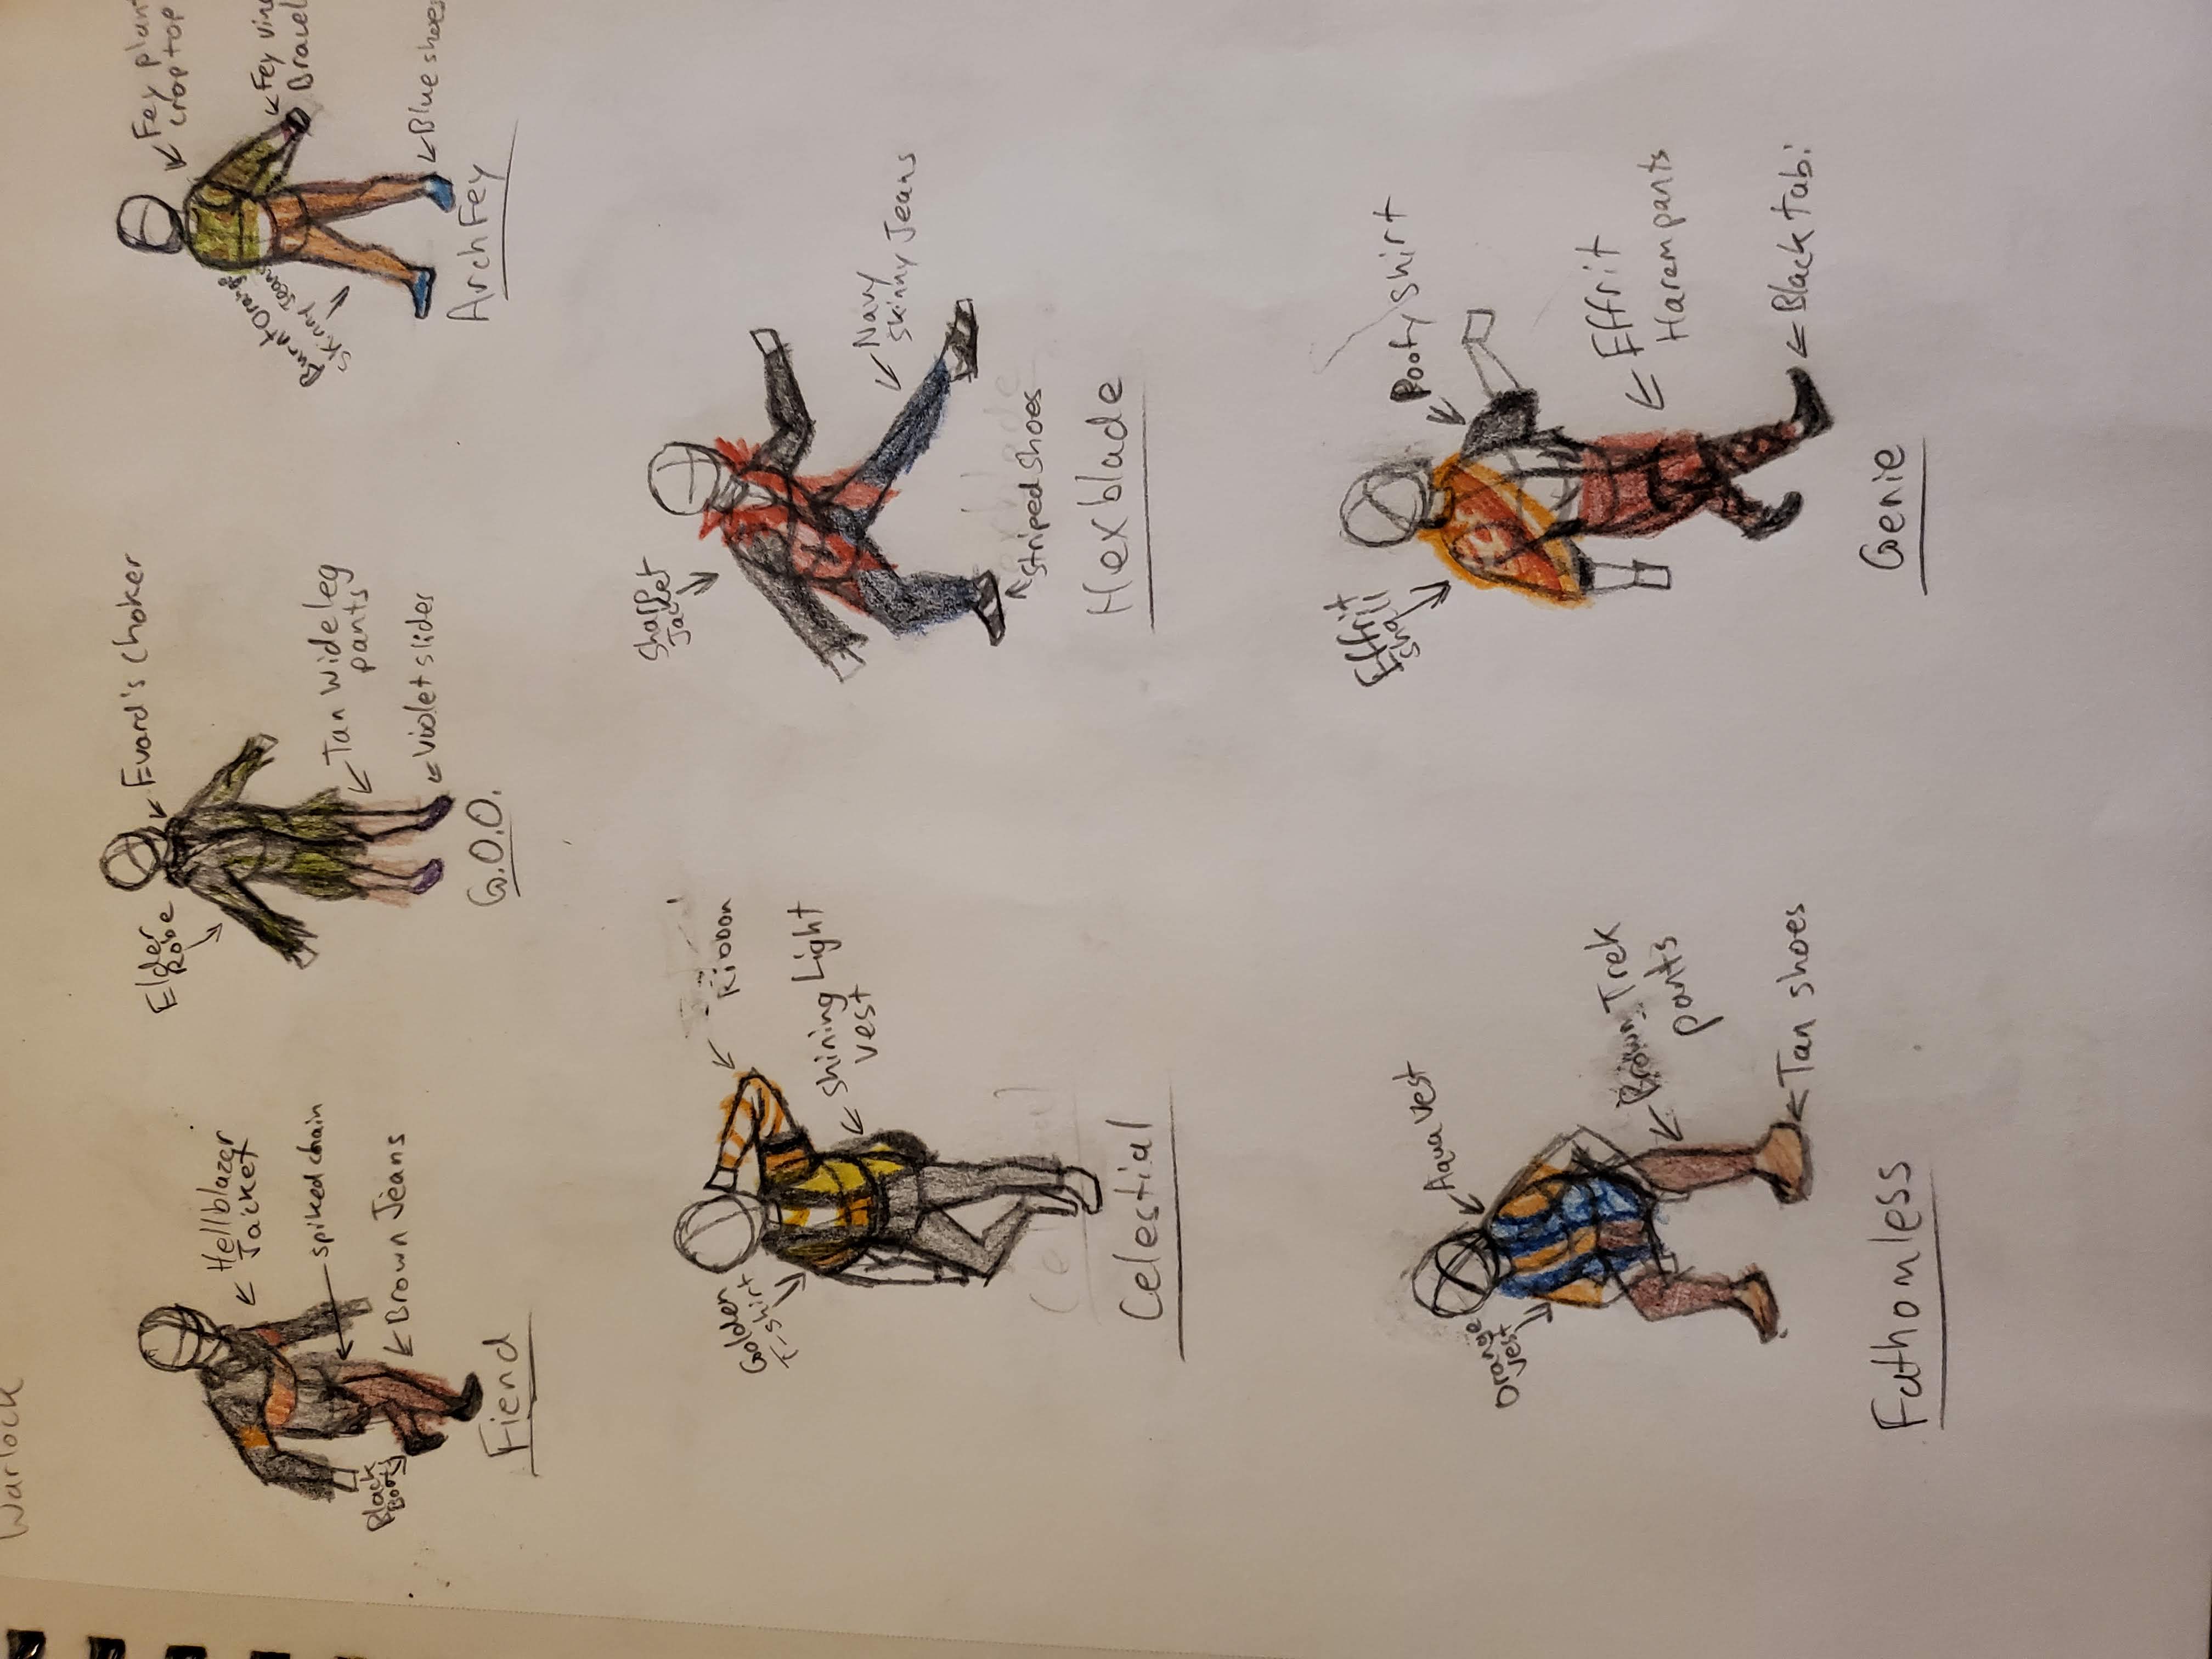 Warlock
Hellblazer
Jacket
spiked chain
Black
Boots
Brown Jeans
Fiend
Elder
Robe
Evard's choker
Tan Wide leg
pants
Violet sliders
G.O.O.
Fey plan
crop top
Burnt Orange
skinny Jeans
Fey vine
Bracel
Blue shoes
ArchFey
Golden
T-shirt
Ribbon
Shining Light
vest
Celestial
Sharp
Jacket
Navy
Skinny Jeans
striped shoes
Hexblade
Aqua vest
Orange
vest
Brown Trek
pants
Tan shoes
Fathomless
Effrit
shall
Poofy shirt
Effrit
Harem pants
Black tabi
Genie